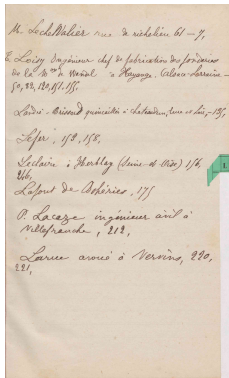 M. Lechevalier rue de richelieu 61 – 9,
E. Loisy Ingénieur chef de fabrication des fonderies
de la Mon de Wendel à Hayange. Alsace-Lorraine –
50, 82, 120, 151, 155,
quincailler à Chateaudun, Eure et Loir – 135,
Lefer, 158, 158,
Leclaire à Herblay (Seine et Oise) 156
Lafont de 175
P. Lacaze ingénieur civil à
Villefranche, 212,
Larue avoué à Vervins, 220,
221,